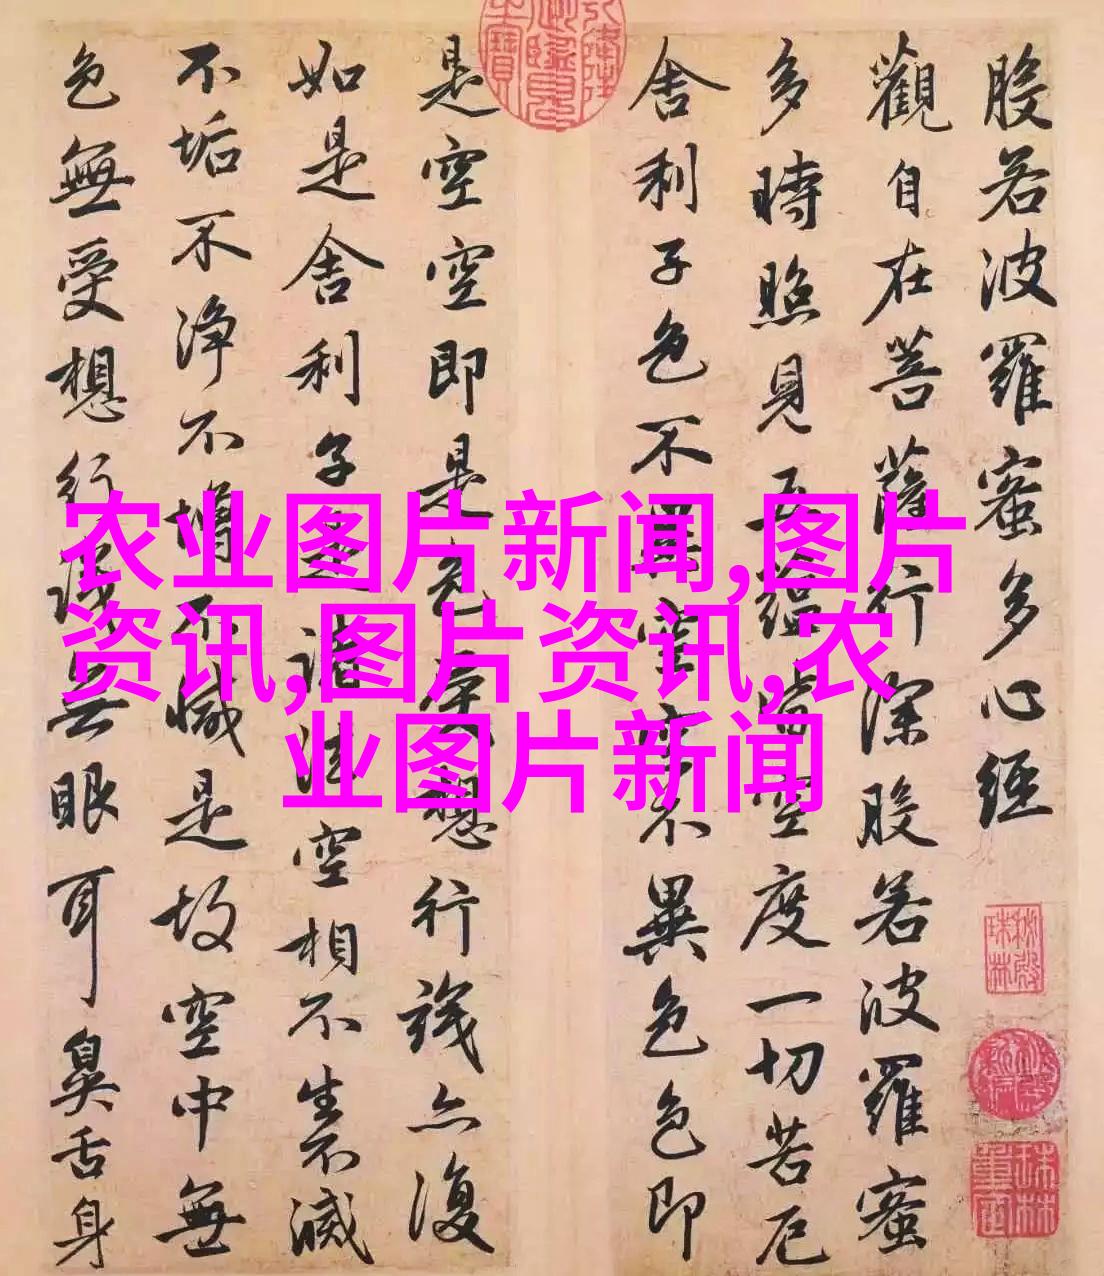 般若波羅蜜多心經
觀自在菩薩行深般若波羅蜜
多時照見五蘊皆空度一切苦厄
舍利子色不異空空不異色色即
是空空即是色受想行識亦復
如是舍利子是諸法空相不生不滅
不垢不淨不增不減是故空中無
色無受想行識无眼耳鼻舌身
农业图片新闻,图片
资讯,图片资讯,农
业图片新闻
秘殿珠林
珠林重定